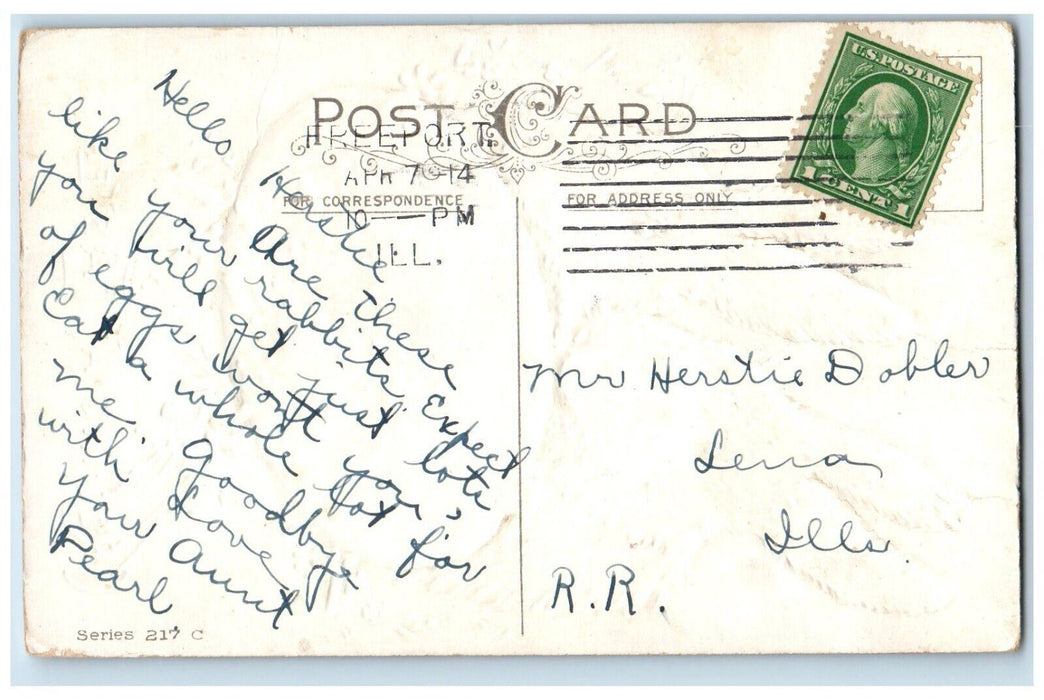 POST CARD
FREEPORT
APR 7 -14
10 — PM
ILL.
U.S. POSTAGE
1 CENT 1
FOR CORRESPONDENCE
FOR ADDRESS ONLY
Hello Herstie
Are these
like your rabbits. Expect
you will get just lots
of eggs won't you,
Eat a whole lot for
me. Goodbye
with Love
your Aunt
Pearl
Mr Herstie Dobler
Lena
Ills
R.R.
Series 217 C